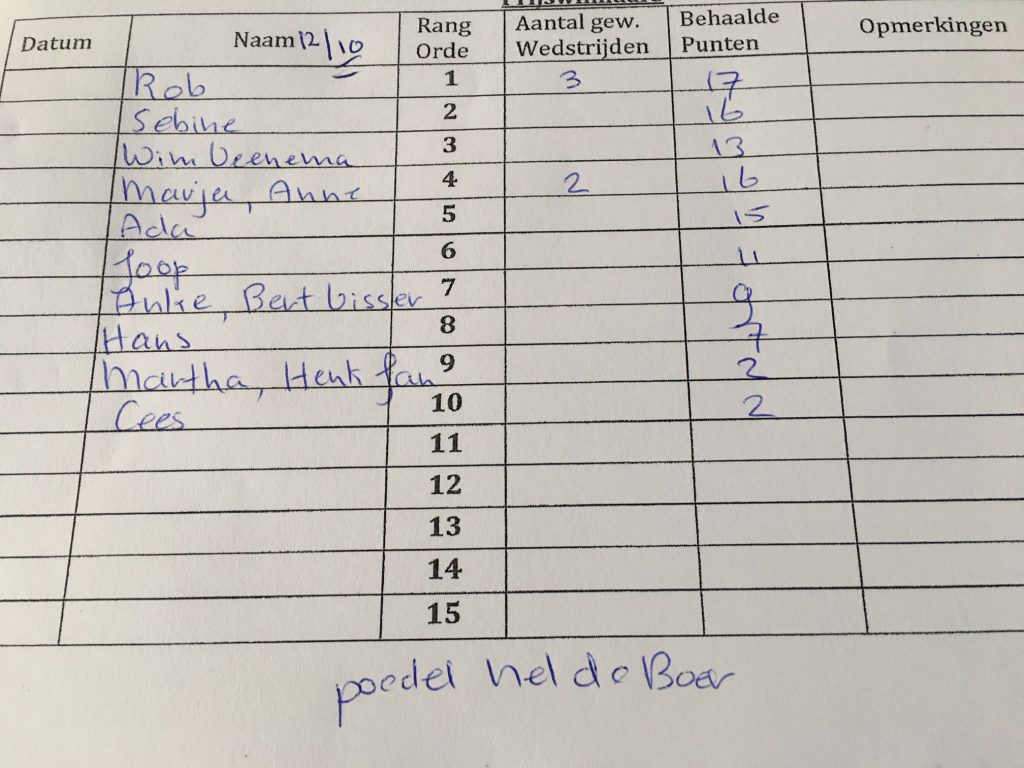 Prijswinnaars
Datum Naam 12/10 Rang Orde Aantal gew. Wedstrijden Behaalde Punten Opmerkingen
Rob 1 3 17
Sebine 2 16
Wim Veenema 3 13
Marja, Anne 4 2 16
Ada 5 15
Joop 6 11
Anke, Bert Visser 7 9
Hans 8 7
Martha, Henk Jan 9 2
Cees 10 2
11
12
13
14
15
poedel hel de Boer